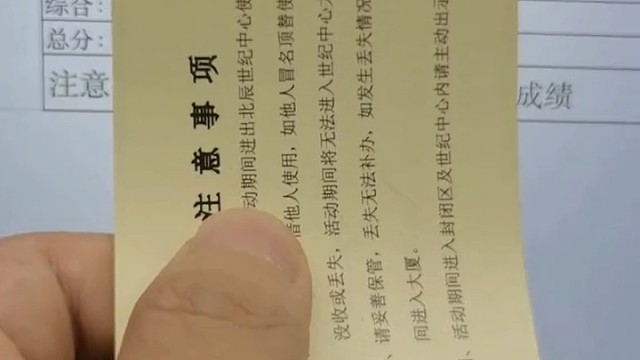 综合:
总分:
注意
成绩
注意事项
动期间进出北辰世纪中心使
借他人使用，如他人冒名顶替使
没收或丢失，活动期间将无法进入世纪中心
、请妥善保管，丢失无法补办，如发生丢失情况
间进入大厦。
、活动期间进入封闭区及世纪中心内请主动出示